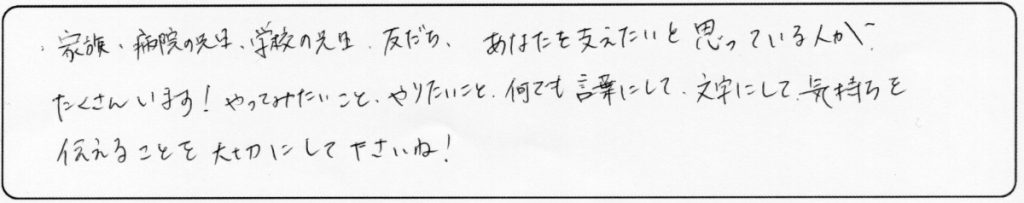 家族、病院の先生、学校の先生、友だち、あなたを支えたいと思っている人が、
たくさんいます！やってみたいこと、やりたいこと、何でも言葉にして、文字にして、気持ちを
伝えることを大切にして下さいね！